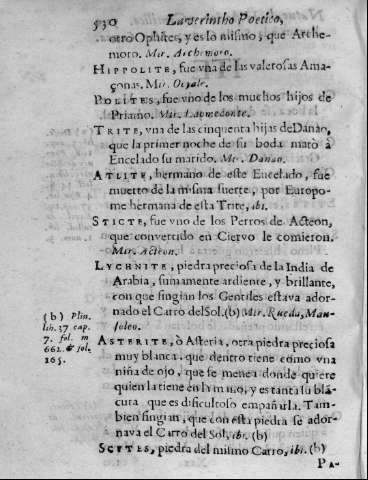 530 Laverintho Poetico,
otro Ophites, y es lo mismo, que Arche-
moro. Mir. Archemoro.
HIPPOLITE, fue vna de las valerosas Ama-
çonas. Mir.
POLITES, fue vno de los muchos hijos de
Priamo. Mir. Laomedonte.
TRITE, vna de las cinquenta hijas de Danao,
que la primer noche de su boda matò à
Encelado su marido. Mir. Danao.
ATLITE, hermano de este Encelado, fue
muerto de la misma suerte, por Europo-
me hermana de esta Trite, ibi.
STICTE, fue vno de los Perros de Acteon,
que convertido en Ciervo le comieron.
Mir. Acteon.
LYCHNITE, piedra preciosa de la India de
Arabia, sumamente ardiente, y brillante,
con que fingian los Gentiles estava ador-
nado el Carro del Sol. (b) Mir. Rueda, Mau-
soleo.
(b) Plin.
lib. 37 cap.
7. fol. m
662. & fol.
265.
ASTERITE, ò Asteria, otra piedra preciosa
muy blanca, que dentro tiene como vna
niña de ojo, que se menea donde quiere
quien la tiene en la mano, y es tanta su blã-
cura que es dificultoso empañarla. Tam-
bien fingian, que con esta piedra se ador-
nava el Carro del Sol, ibi. (b)
SCITES, piedra del mismo Carro, ibi. (b)
PA-